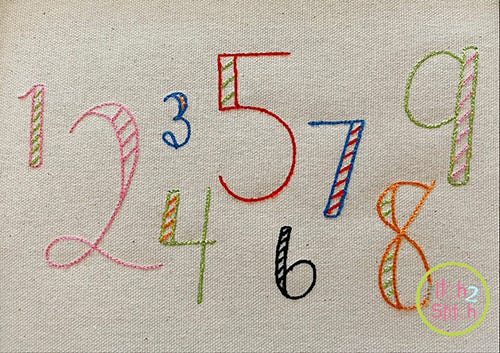 1 2 3 5 7 9
4 6 8
It h
2
Stit h